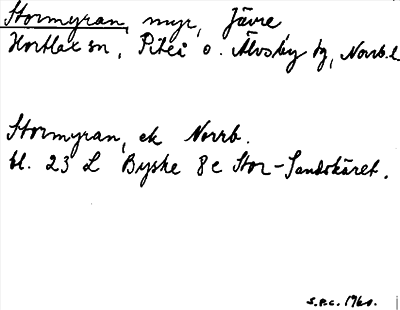 Stormyran, myr, Jävre
Hortlax sn, Piteå o. Älvsby tg, Norrb.l
Stormyran, ek Norrb.
bl. 23 L Byske 8c Stor-Sandskäret.
S.P.C. 1960.